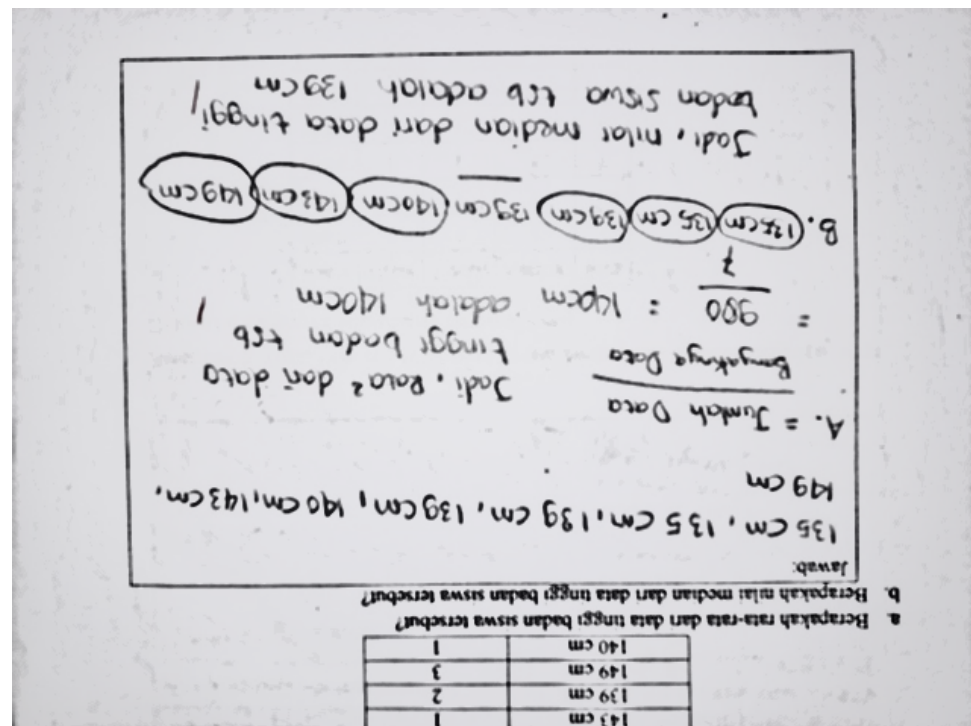 143 cm 1
139 cm 2
149 cm 3
140 cm 1
a. Berapakah rata-rata dari data tinggi badan siswa tersebut?
b. Berapakah nilai median dari data tinggi badan siswa tersebut?
Jawab:
135 cm, 135 cm, 139 cm, 139 cm, 140 cm, 143 cm,
149 cm
A. = Jumlah Data
Banyaknya Data
Jadi, Rata² dari data
tinggi badan tsb
= 980 = 140cm adalah 140cm
7
B. 135cm 135 cm 139cm 139cm 140cm 143cm 149cm
Jadi, nilai median dari data tinggi
badan siswa tsb adalah 139cm